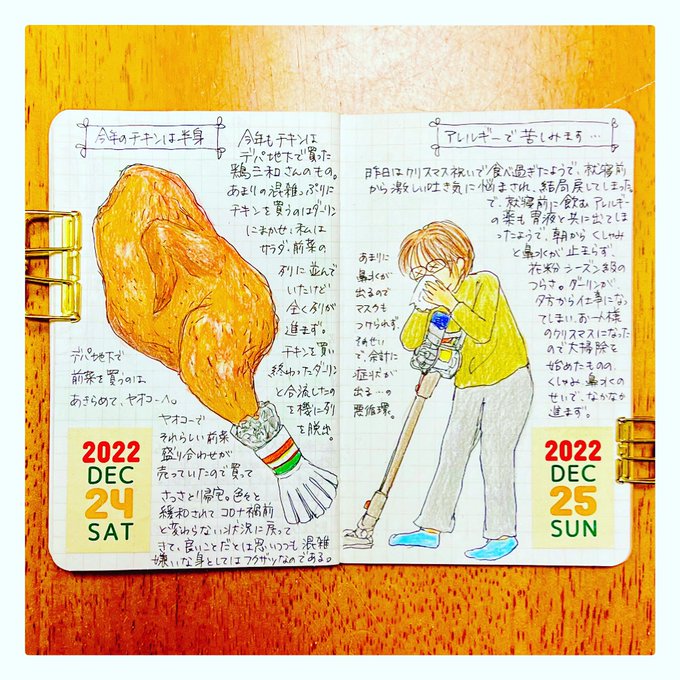 今年のチキンは半身
今年もチキンは
デパ地下で買った
鶏三和さんのもの。
あまりの混雑っぷりに
チキンを買うのはダーリン
にまかせ、私は
サラダ、前菜の
列に並んで
いたけど
全く列が
進まず。
チキンを買い
終わったダーリン
と合流したの
を機に列
を脱出。
デパ地下で
前菜を買うのは
あきらめて、ヤオコーへ。
ヤオコーで
それらしい前菜
盛り合わせが
売っていたので買って
さっさと帰宅。色々と
緩和されてコロナ禍前
と変わらない状況に戻って
きて、良いことだとは思いつつも混雑
嫌いな身としてはフクザツなのである。
2022
DEC
24
SAT
アレルギーで苦しみます…
昨日はクリスマス祝いで食べ過ぎたようで、就寝前
から激しい吐き気に悩まされ、結局戻してしまった。
で、就寝前に飲むアレルギー
の薬も胃液と共に出てしま
ったようで、朝からくしゃみ
と鼻水が止まらず、
花粉シーズン級の
つらさ。ダーリンが
夕方から仕事にな
ってしまい、お一人様
のクリスマスになった
ので大掃除を
始めたものの、
くしゃみ、鼻水の
せいで、なかなか
進まず。
あまりに
鼻水が
出るので
マスクも
つけられず、
そのせい
で、余計に
症状が
出る…の
悪循環。
2022
DEC
25
SUN